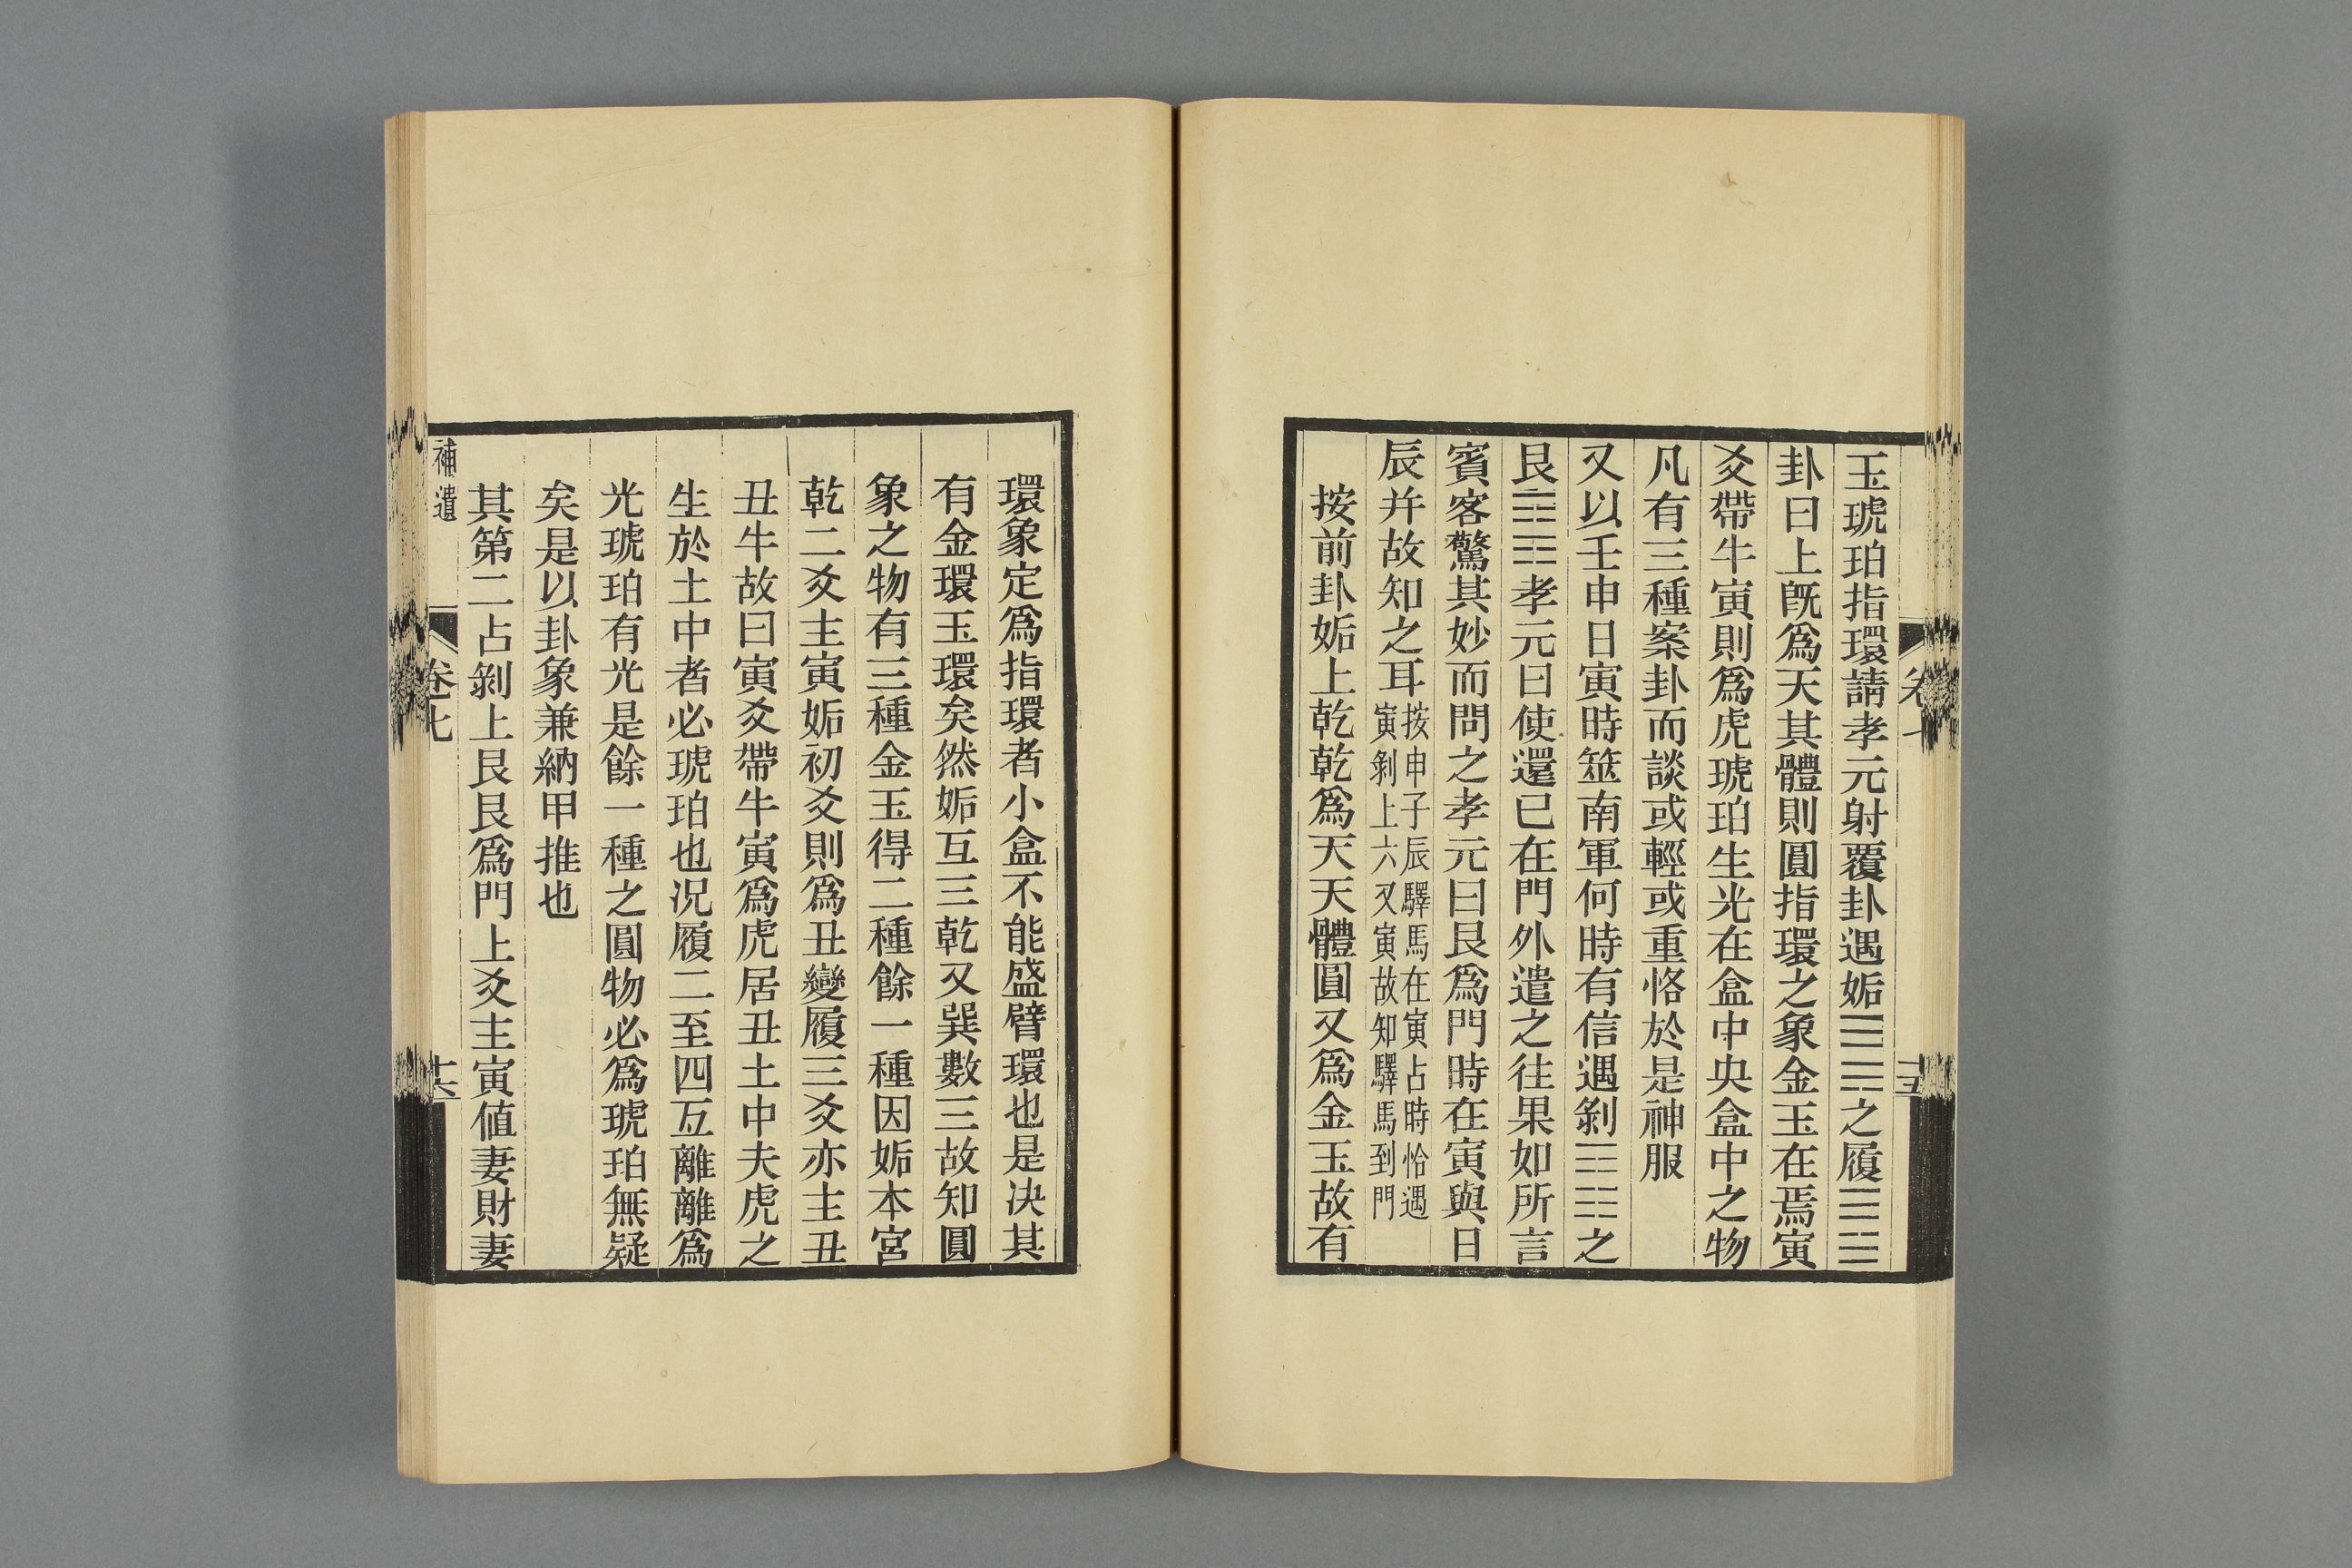 玉琥珀指環請孝元射覆卦遇姤䷫之履䷉
卦曰上旣爲天其體則圓指環之象金玉在焉寅
爻帶牛寅則爲虎琥珀生光在盒中央盒中之物
凡有三種案卦而談或輕或重恪於是神服
又以壬申日寅時筮南軍何時有信遇剝䷖之
艮䷳孝元曰使還已在門外遣之往果如所言
賓客驚其妙而問之孝元曰艮爲門時在寅與日
辰并故知之耳按申子辰驛馬在寅占時恰遇寅剝上六又寅故知驛馬到門
按前卦姤上乾乾爲天天體圓又爲金玉故有
卷七
十五
環象定爲指環者小盒不能盛臂環也是決其
有金環玉環矣然姤互三乾又巽數三故知圓
象之物有三種金玉得二種餘一種因姤本宮
乾二爻主寅姤初爻則爲丑變履三爻亦主丑
丑牛故曰寅爻帶牛寅爲虎居丑土中夫虎之
生於土中者必琥珀也況履二至四互離離爲
光琥珀有光是餘一種之圓物必爲琥珀無疑
矣是以卦象兼納甲推也
其第二占剝上艮艮爲門上爻主寅值妻財妻
補遺
卷七
十六